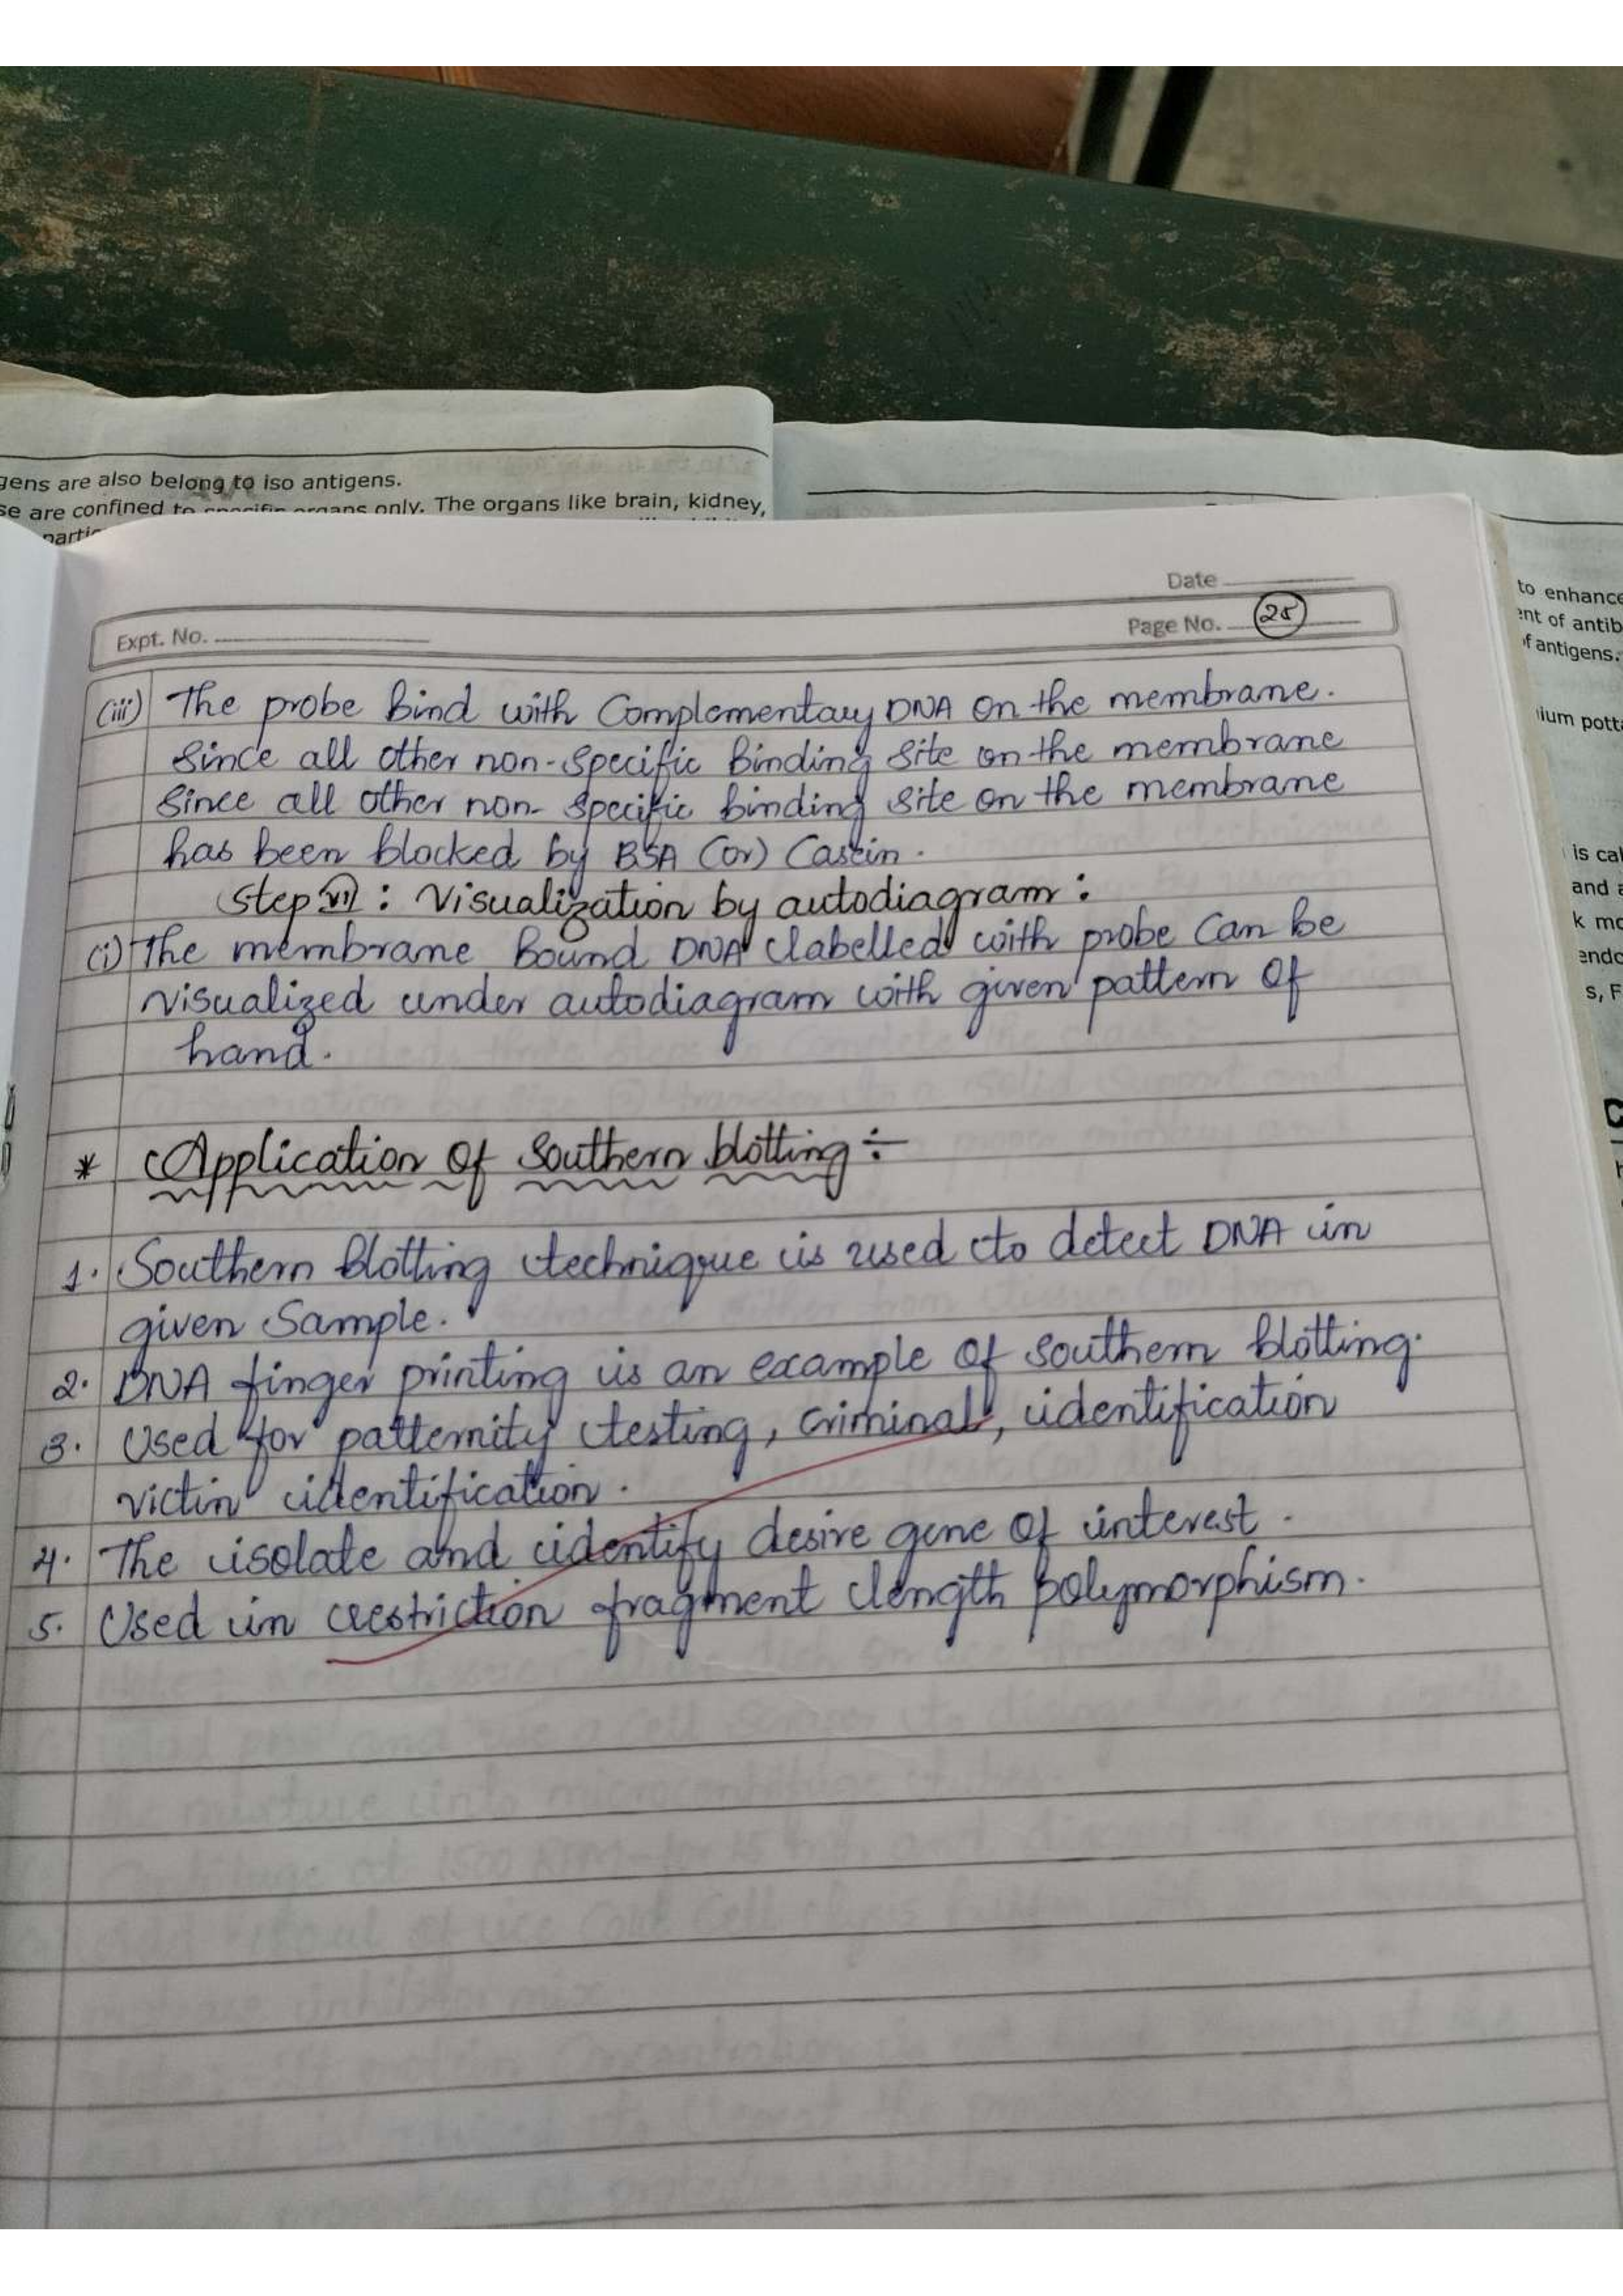 gens are also belong to iso antigens.
se are confined to specific organs only. The organs like brain, kidney,
partic
to enhance
ent of antib
f antigens.
ium potta
is cal
and a
k mo
endo
s, F
Date
Expt. No.
Page No. 25
(iii) The probe bind with Complementary DNA on the membrane.
Since all other non-specific binding site on the membrane
Since all other non-specific binding site on the membrane
has been blocked by BSA (or) Casein.
Step VII : Visualization by autodiagram :
(i) The membrane bound DNA labelled with probe can be
visualized under autodiagram with given pattern of
hand.
* Application of Southern blotting :-
1. Southern blotting technique is used to detect DNA in
given Sample.
2. DNA finger printing is an example of Southern blotting.
3. Used for patternity testing, criminal, identification
victin identification.
4. The isolate and identify desire gene of interest.
5. Used in restriction fragment length polymorphism.